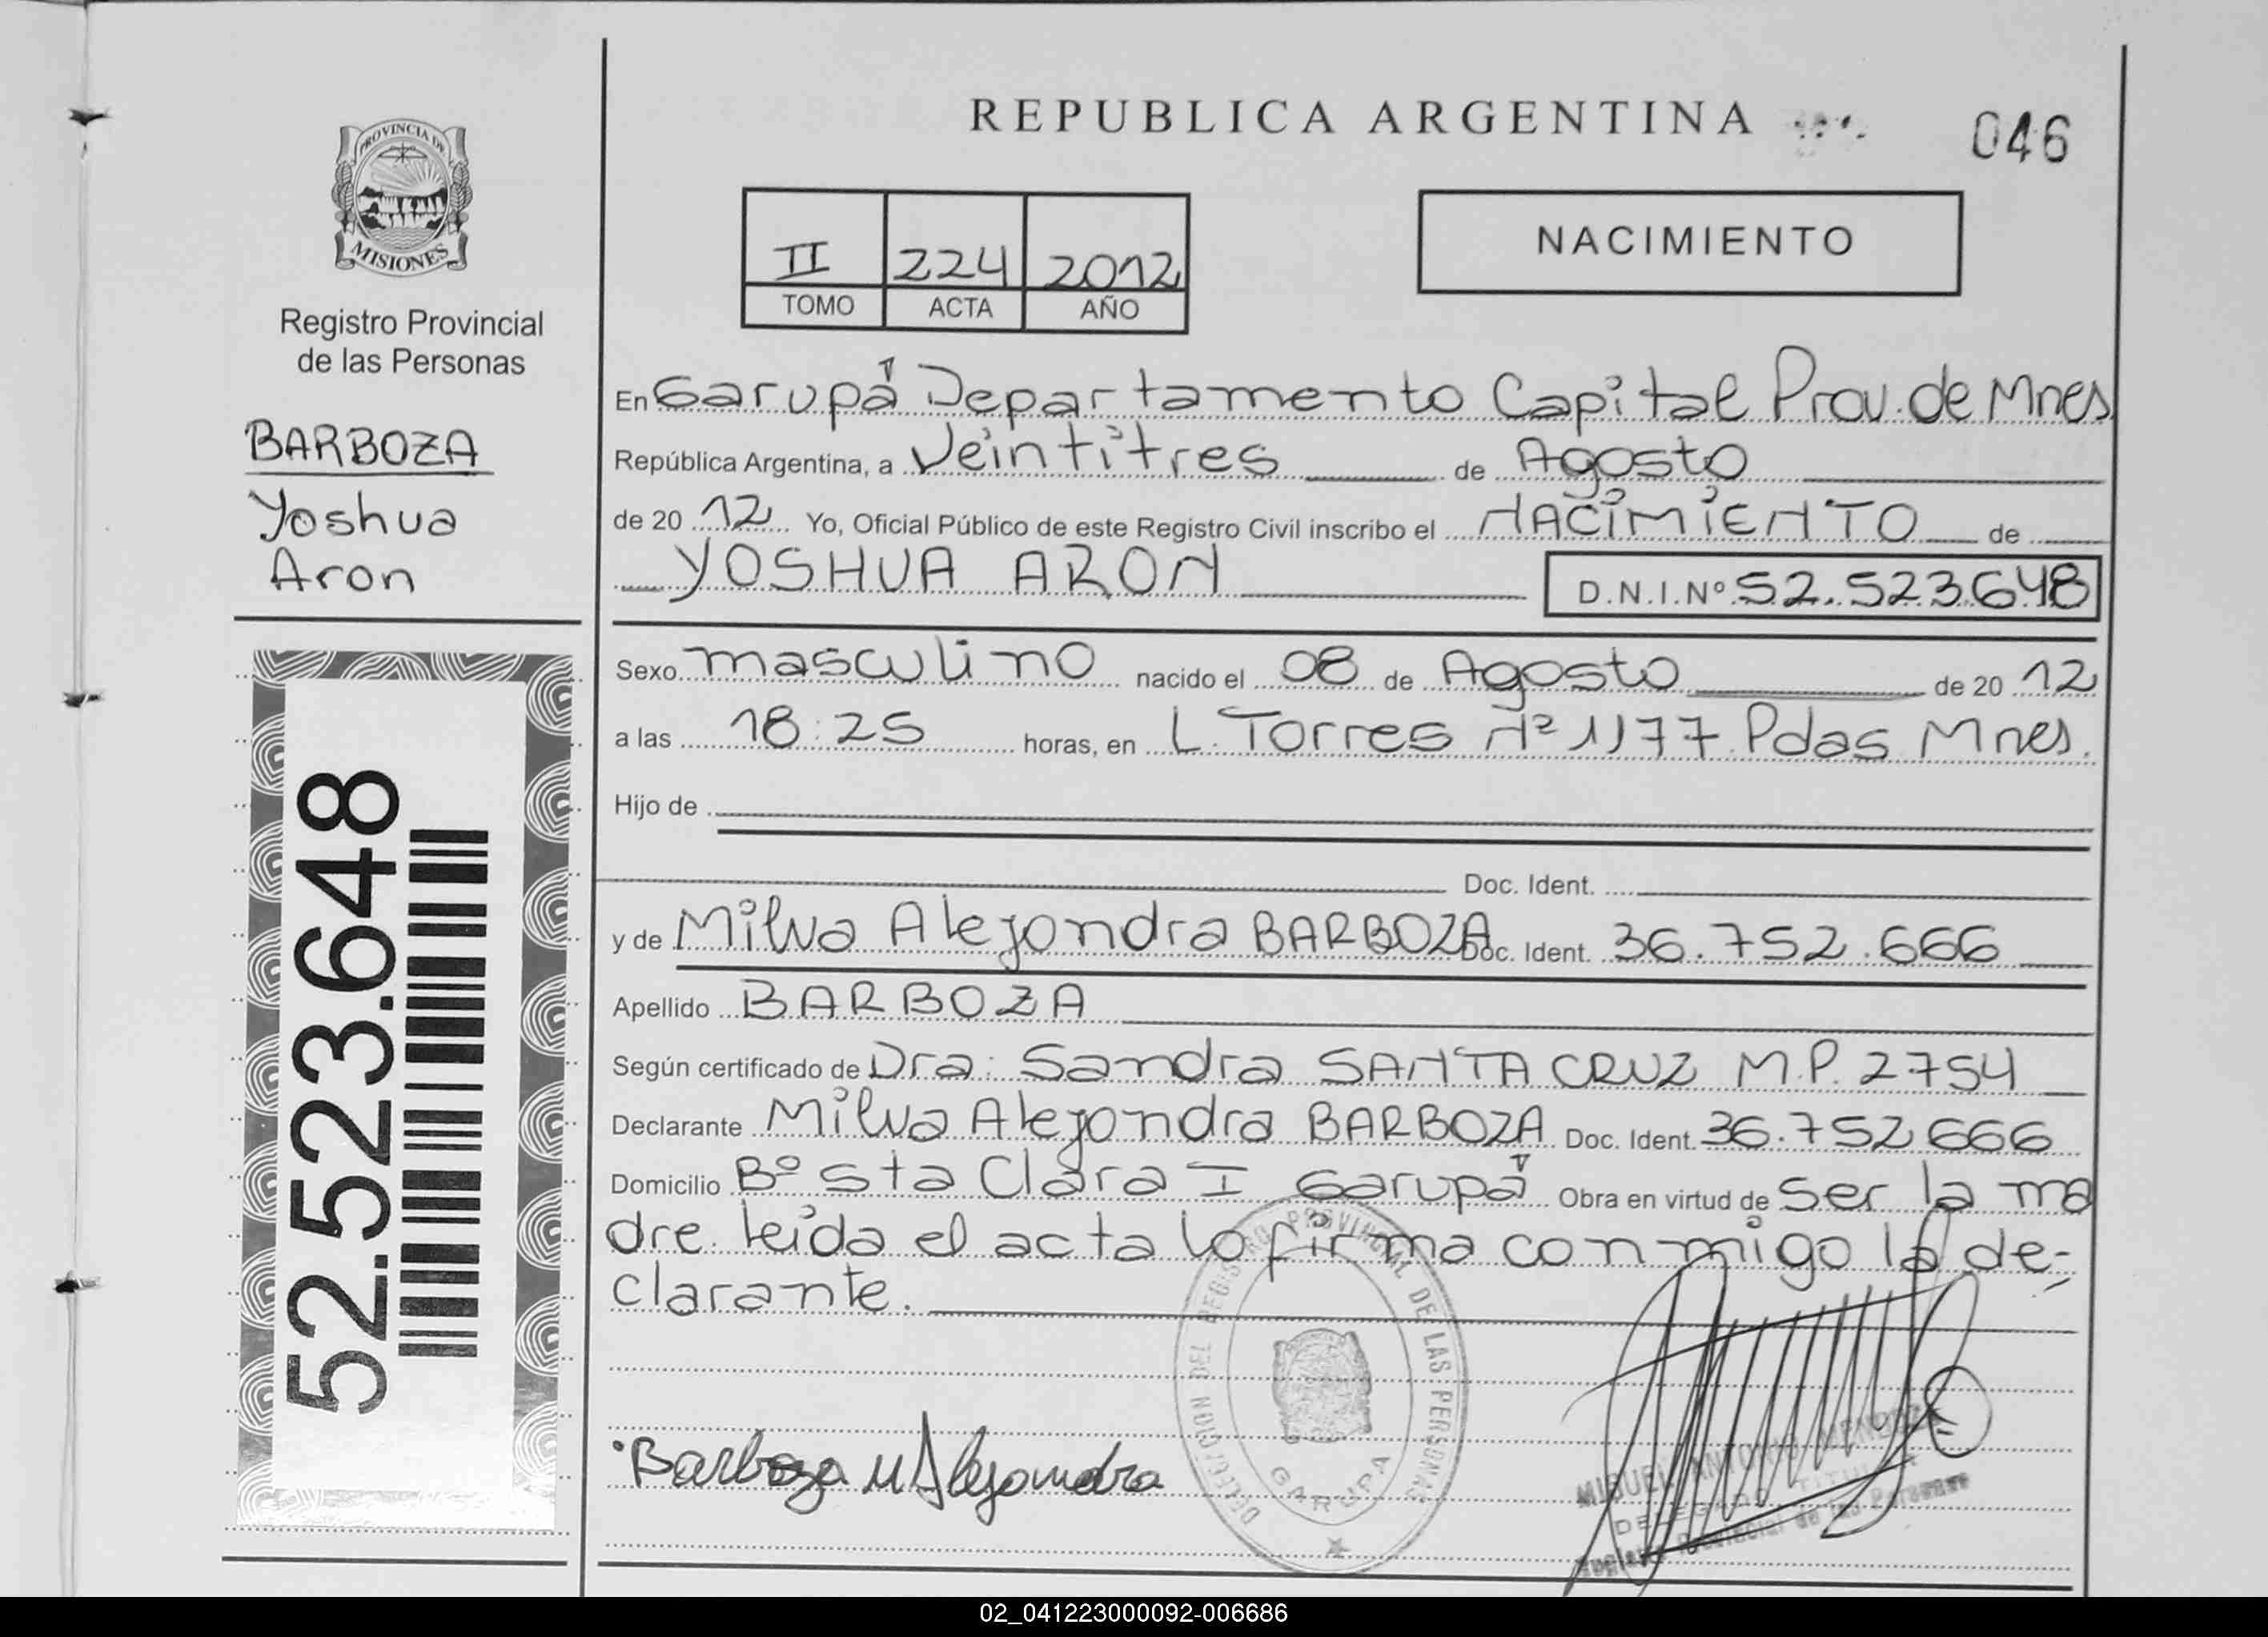 REPUBLICA ARGENTINA
046
PROVINCIA DE
MISIONES
Registro Provincial
de las Personas
BARBOZA
Yoshua
Aron
52.523.648
II 224 2012
TOMO ACTA AÑO
NACIMIENTO
En Garupá Departamento Capital Prov. de Mnes
República Argentina, a Veintitres de Agosto
de 20 12 Yo, Oficial Público de este Registro Civil inscribo el NACIMIENTO de
YOSHUA ARON D.N.I.Nº 52.523.648
Sexo masculino nacido el 08 de Agosto de 20 12
a las 18:25 horas, en L. Torres Nº 1177 Pdas Mnes.
Hijo de
Doc. Ident.
y de Milva Alejandra BARBOZA Doc. Ident. 36.752.666
Apellido BARBOZA
Según certificado de Dra. Sandra SANTA CRUZ M.P. 2754
Declarante Milva Alejandra BARBOZA Doc. Ident. 36.752.666
Domicilio Bº Sta Clara I Garupá Obra en virtud de Ser la ma
dre. leida el acta lo firma conmigo la de-
clarante.
Barboza M Alejandra
DELEGACION DEL REGISTRO PROVINCIAL DE LAS PERSONAS
GARUPA
MIGUEL ANTONIO MENDOZA
DELEGADO TITULAR
Registro Provincial de las Personas
02_041223000092-006686